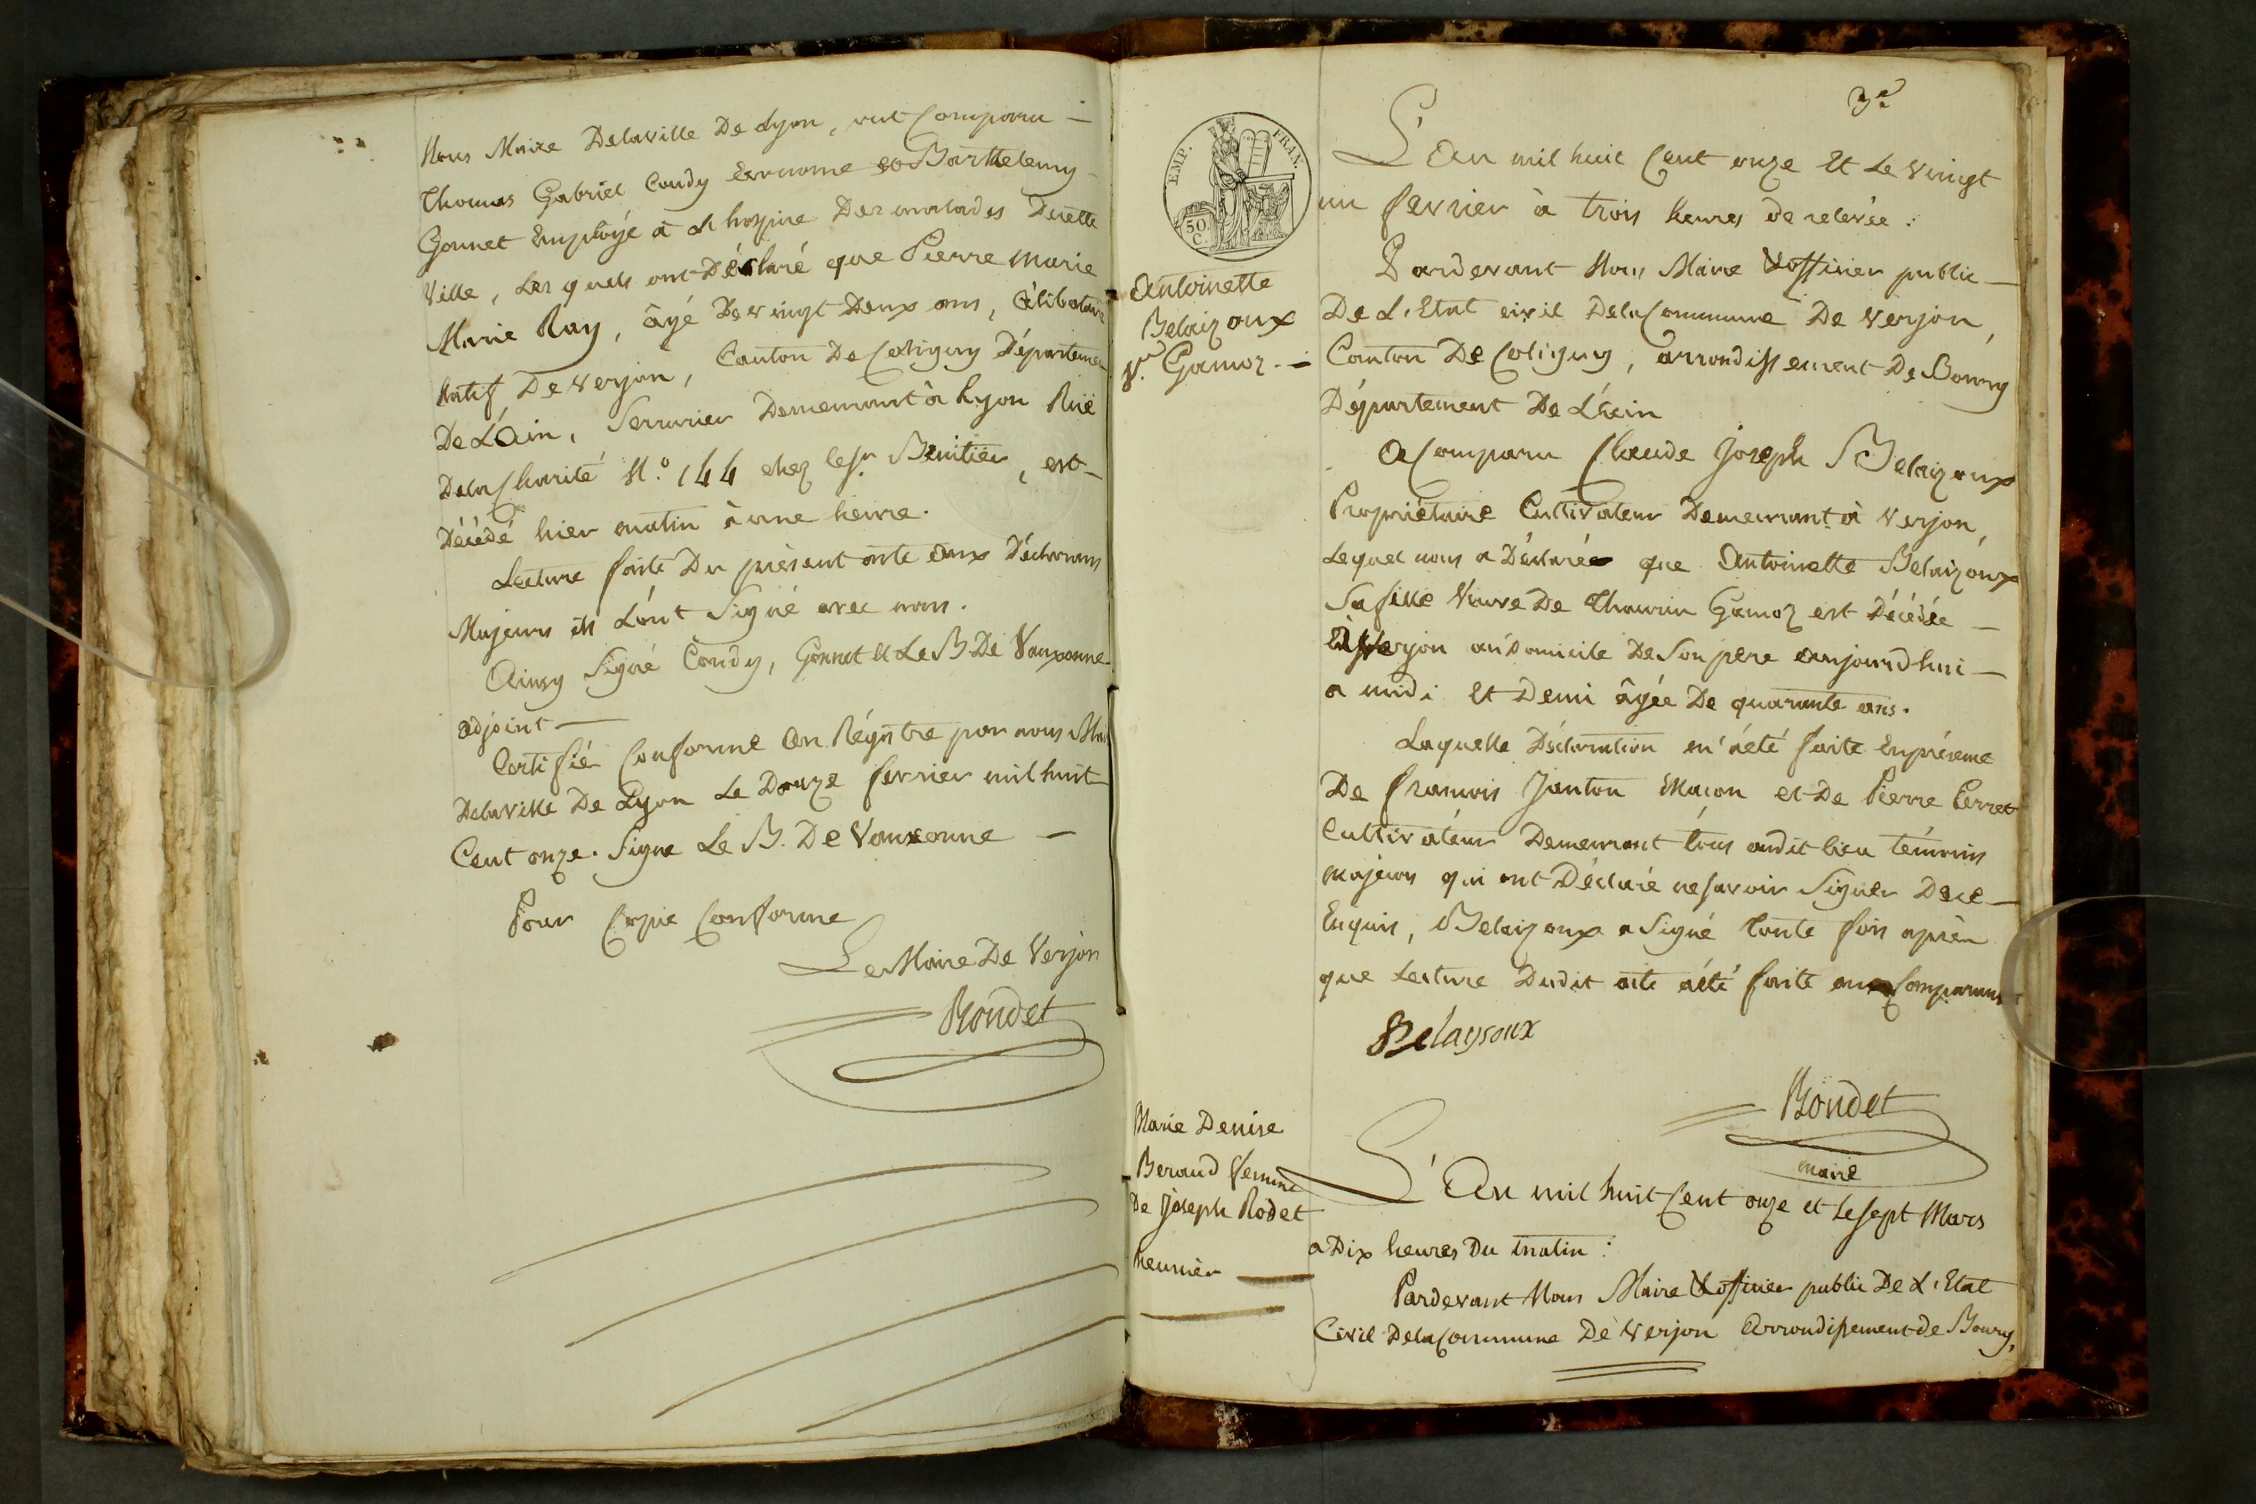 Nous Maire Delaville De Lyon, ont Comparu —
Thomas Gabriel Coudy et Barthelemy
Gonnet Employé à L'hospice Des malades De cette
Ville, Les quels ont Déclaré que Pierre Marie
Marie Ray, âgé De vingt Deux ans, Célibataire
Natif De Verjon, Canton De Coligny Département
De L'Ain, Serrurier Demeurant à Lyon Ruë
Dela Charité N.º 144 chez le Sr. Benitier, est
Décédé hier matin à une heure.
Lecture faite Du présent acte aux Déclarans
Majeurs ils L'ont Signé avec nous.
Ainsy Signé Coudy, Gonnet et Le B. De Vauxonne
adjoint —
Certifié Conforme au Régistre par nous
Delaville De Lyon Le Douze fevrier mil huit
Cent onze. Signe Le B. De Vauxonne —
Pour Copie Conforme
Le Maire De Verjon
Rondet
EMP. FRAN.
50. C.
Antoinette
Belaizoux
ve. Gamoz. —
3e
L'An mil huit Cent onze Et Le vingt
un fevrier à trois heures de relevée:
Pardevant Nous Maire & officier public —
De L'Etat civil Dela Commune De Verjon,
Canton De Coligny, arrondissement De Bourg
Département De L'Ain
A Comparu Claude Joseph Belaizoux
Propriétaire Cultivateur Demeurant à Verjon,
Lequel nous a Déclaré que Antoinette Belaizoux
Sa fille Veuve De Thaurin Gamoz est Décédée —
à Verjon au Domicile De Son pere aujourd'hui —
a midi Et Demi âgée De quarante ans.
Laquelle Déclaration m'a été faite En présence
De francois Janton Macon et De Pierre Perret
Cultivateur Demeurant tous audit lieu témoins
majeurs qui ont Déclaré ne savoir Signer De ce —
Enquis, Belaizoux a Signé toute fois après
que Lecture Dudit acte a été faite au Comparant
Belaysoux
Rondet
maire
Marie Denise
Beraud femme
De Joseph Rodet
meunier
L'An mil huit Cent onze et Le Sept Mars
a Dix heures Du matin:
Pardevant Nous Maire & officier public De L'Etat
Civil Dela Commune De Verjon Arrondissement de Bourg,